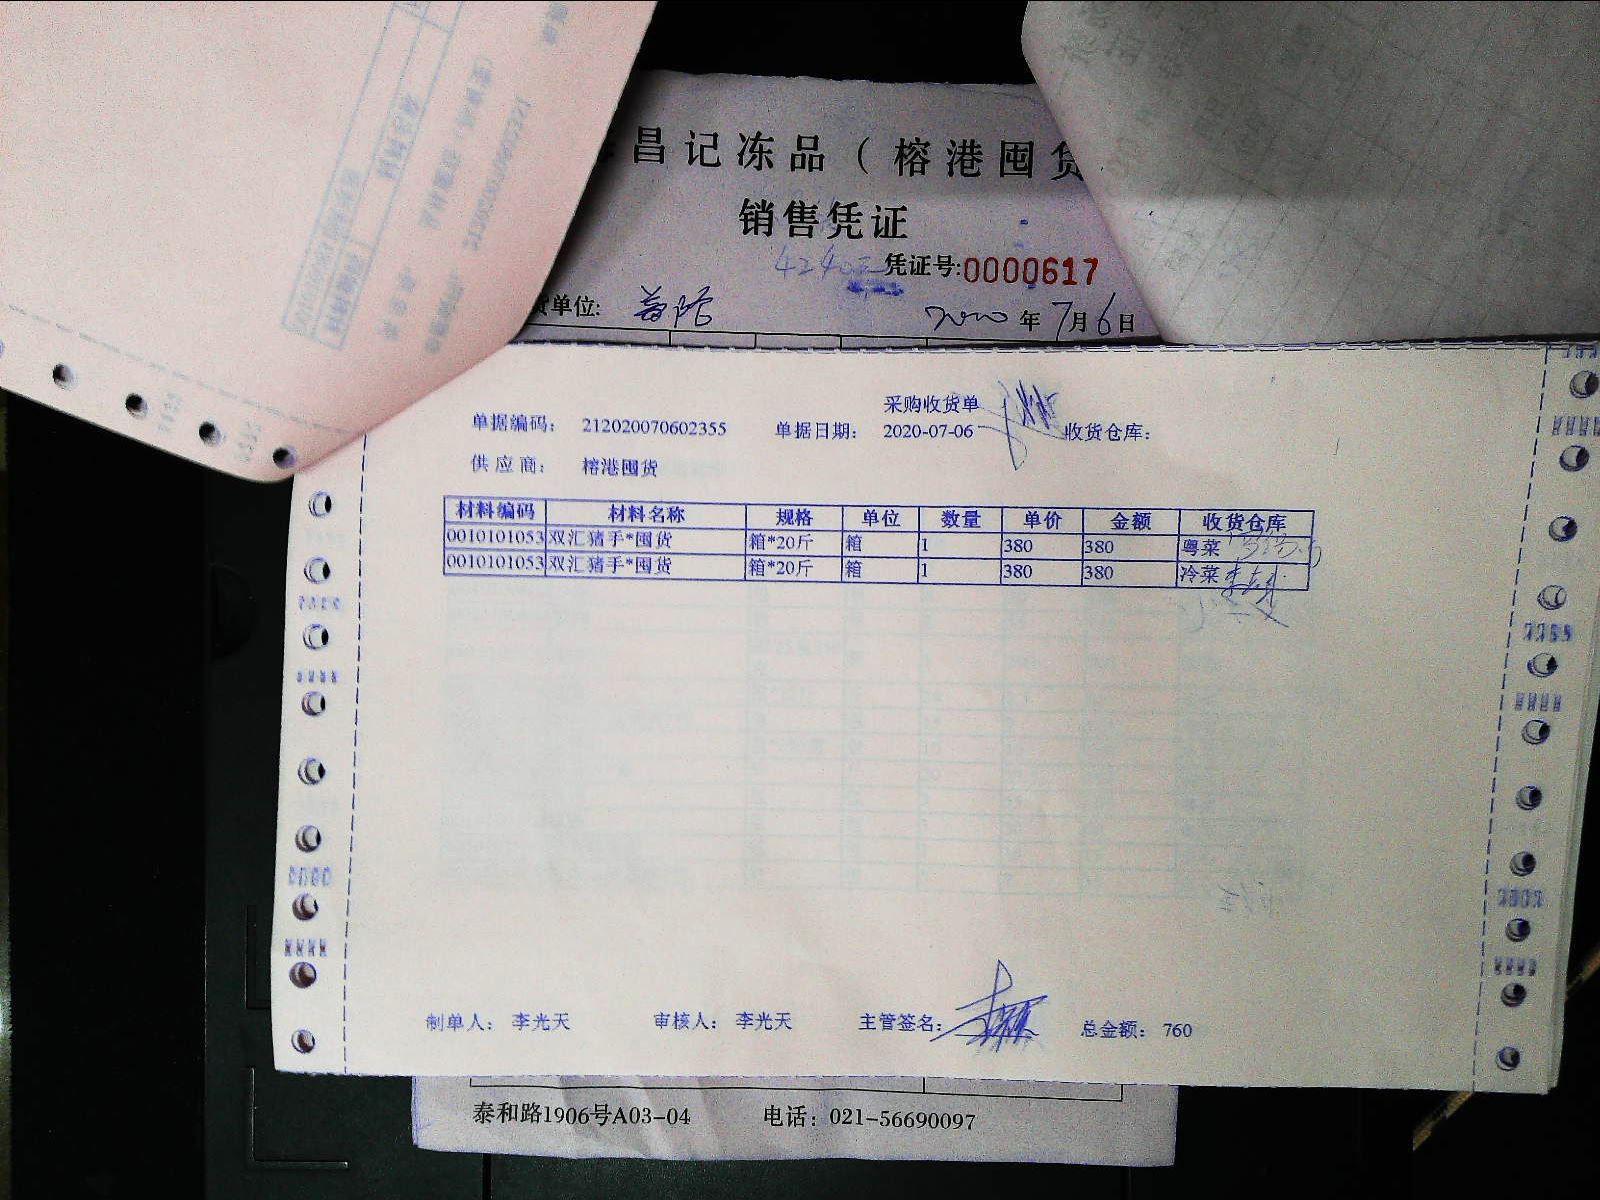 昌记冻品（榕港囤货
销售凭证
凭证号:0000617
货单位:
2020年7月6日
采购收货单
单据编码: 212020070602355 单据日期: 2020-07-06 收货仓库:
供应商: 榕港囤货
材料编码 材料名称 规格 单位 数量 单价 金额 收货仓库
0010101053 双汇猪手*囤货 箱*20斤 箱 1 380 380 粤菜
0010101053 双汇猪手*囤货 箱*20斤 箱 1 380 380 冷菜
制单人: 李光天 审核人: 李光天 主管签名: 总金额: 760
泰和路1906号A03-04 电话: 021-56690097